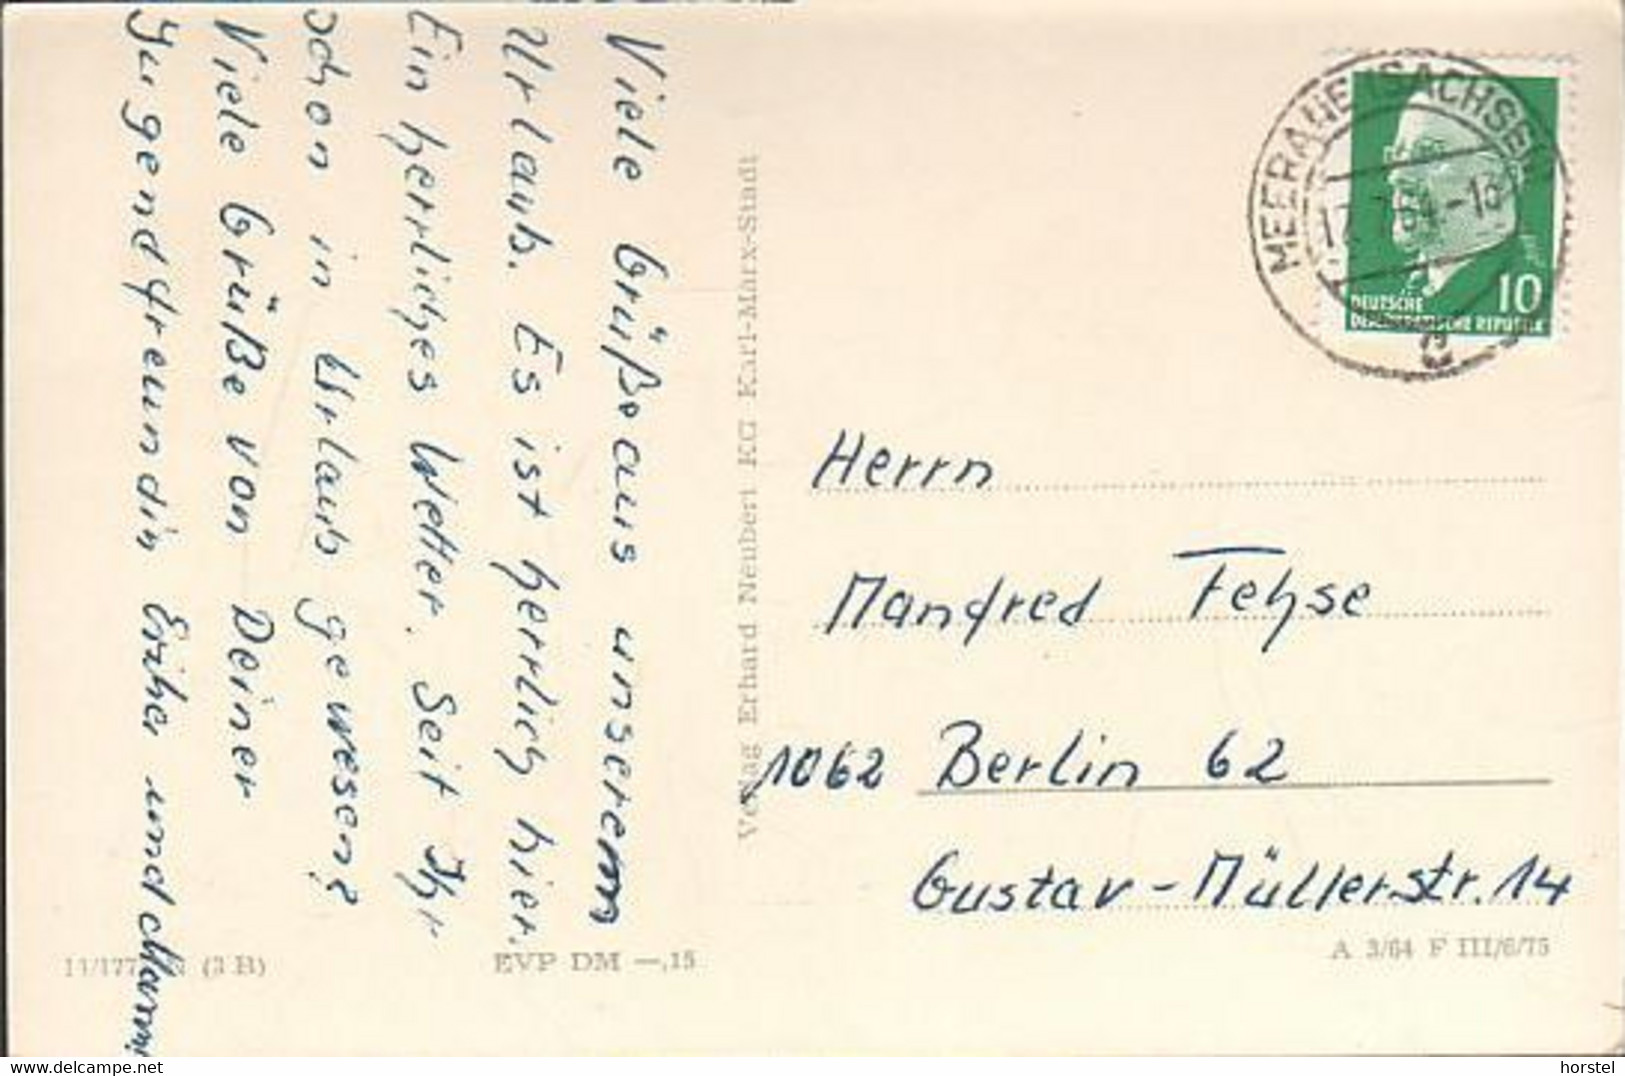 Viele Grüße aus unserem
Urlaub. Es ist herrlich hier.
Ein herrliches Wetter. Seit Ihr
schon in Urlaub gewesen?
Viele Grüße von Deiner
Jugendfreundin und
Verlag Erhard Neubert KG Karl-Marx-Stadt
MEERANE (SACHSEN)
10
DEUTSCHE
DEMOKRATISCHE REPUBLIK
Herrn
Manfred Fehse
1062 Berlin 62
Gustav-Müllerstr. 14
(3 B)
EVP DM —,15
A 3/64 F III/6/75
©www.delcampe.net
horstel